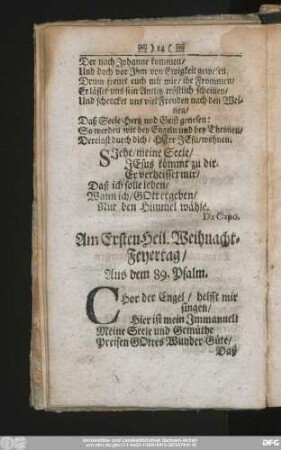 ) 14 (
Der nach Johanne kommen/
Und doch vor Ihm von Ewigkeit gewesen.
Drum freuet euch mit mir/ ihr Frommen/
Er lässet uns sein Antlitz tröstlich scheinen/
Und schencket uns viel Freuden nach den Wei-
nen/
Daß Seele/ Hertz und Geist genesen:
So werden wir bey Engeln und bey Thronen/
Dereinst durch dich/ HErr JEsu/ wohnen.
Siehe/ meine Seele/
JEsus kömmt zu dir.
Er verheisset mir/
Daß ich solle leben/
Wann ich/ GOtt ergeben/
Nur den Himmel wähle.
Da Capo.
Am Ersten Heil. Weihnacht-
Feyertag/
Aus dem 89. Psalm.
CHor der Engel/ helfft mir
singen/
Hier ist mein Immanuel!
Meine Seele und Gemüthe
Preisen GOttes Wunder-Güte/
Daß
Universitäts- und Landesbibliothek Sachsen-Anhalt
DFG